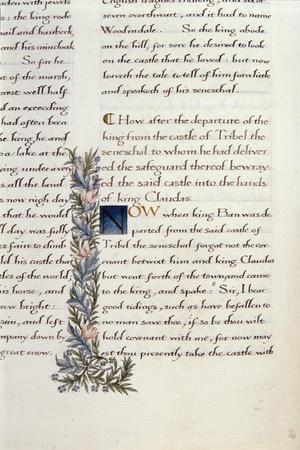 aden with jewels
is: the king rode
mail and hauberc
and his mincloak
So far he
ut of the marsh,
rest well half
d an exceeding
had often been
he king he and
a lake at the
ying under a very
s all the land
s now nigh day
that he would
ll day was fully
as fain to climb
ld his castle that
tles of the world
his horse, and
rew bright:
ain, and left
mpany down by
great enow.
seven overthwart, and it had to name
Woodindale. So the king abode
on the hill, for sore he desired to look
on the castle that he loved: but now
leaveth the tale to tell of him for a while
and speaketh of his seneschal.
How after the departure of the
king from the castle of Tribel the
seneschal to whom he had deliver
ed the safeguard thereof bewray
ed the said castle into the hands
of king Claudas.
NOW when king Ban was de
parted from the said castle of
Tribel the seneschal forgat not the cov
enant betwixt him and king Claudas
but went forth of the town, and came
to the king, and spake: "Sir, I bear
good tidings, such as have befallen to
no man save thee, if so be thou wilt
hold covenant with me, for now may
est thou presently take the castle with